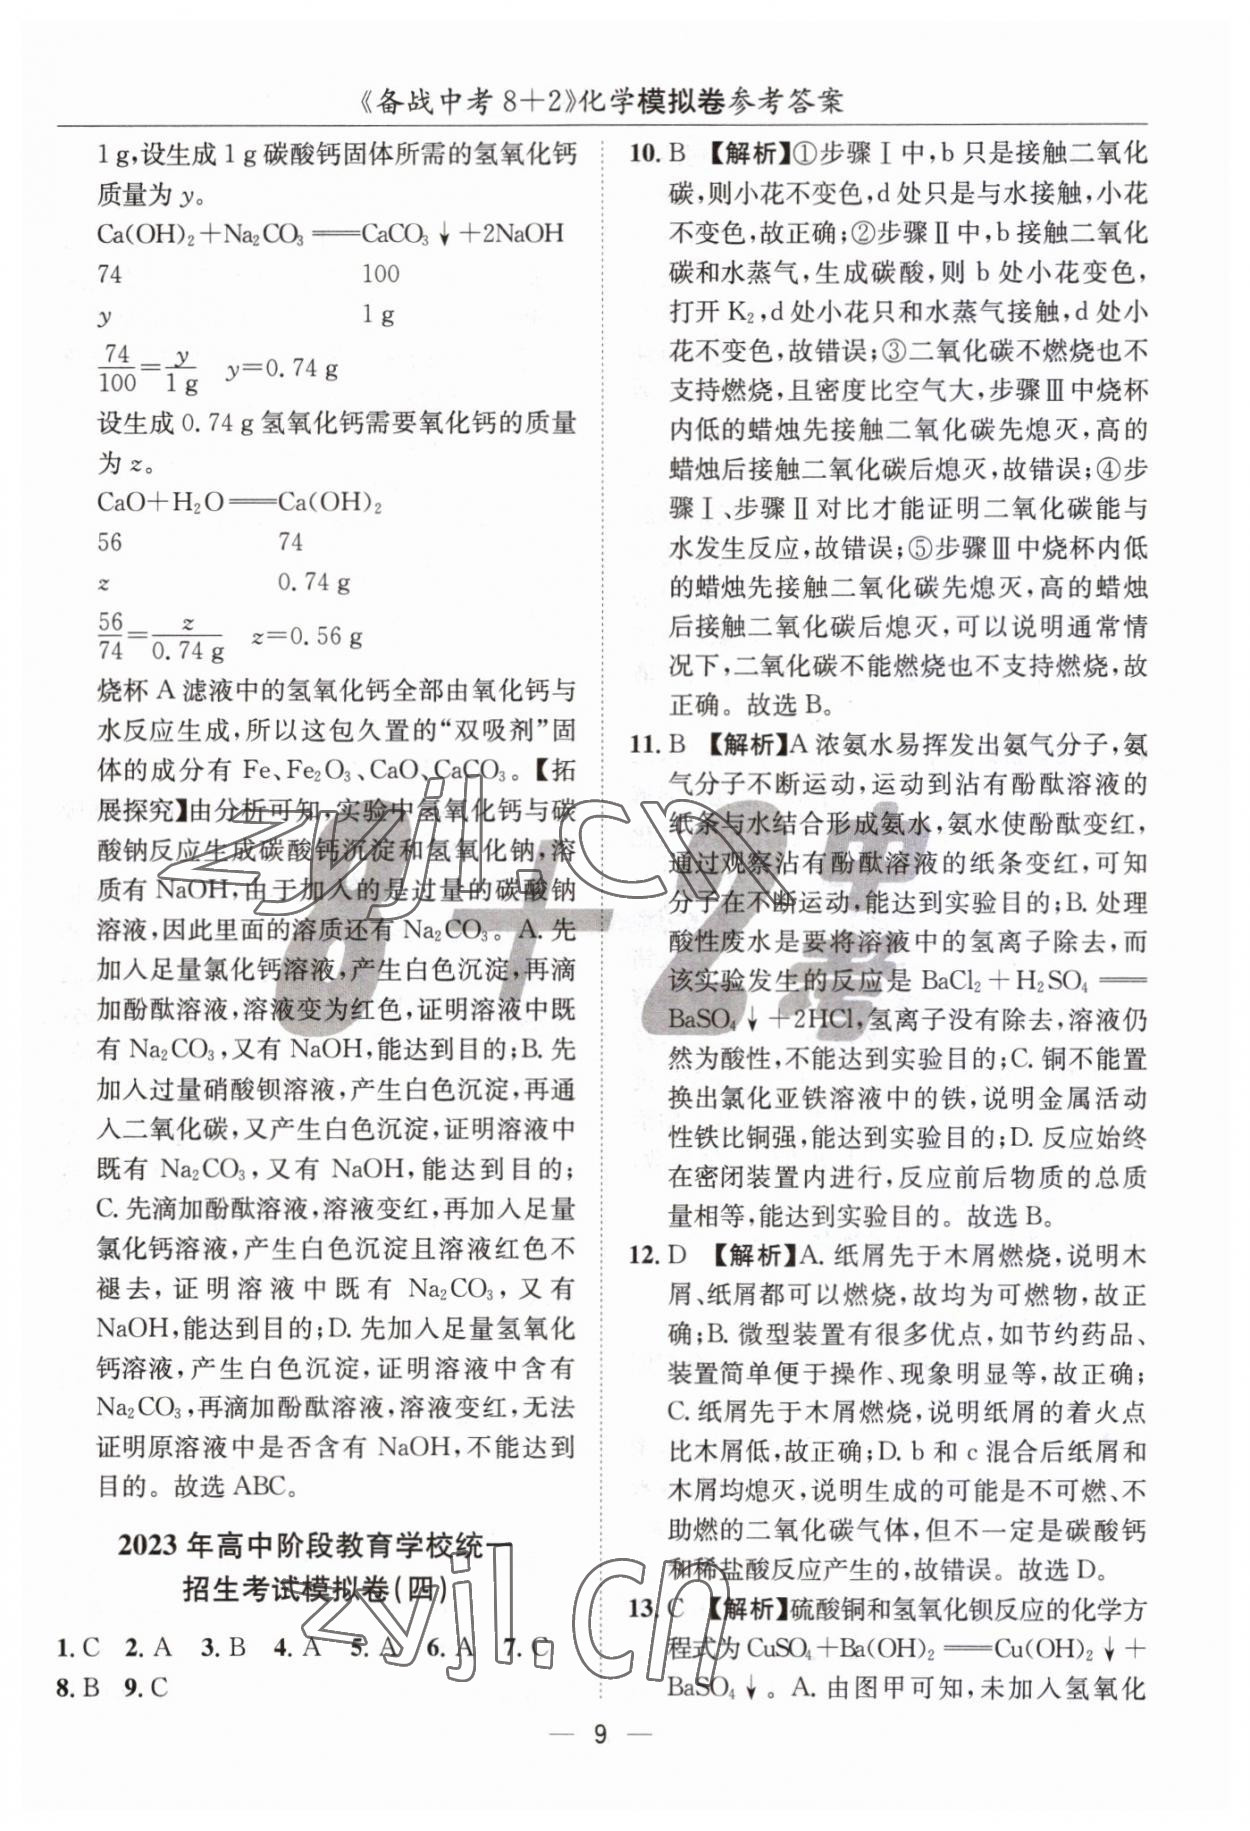 《备战中考8+2》化学模拟卷参考答案
1 g,设生成 1 g 碳酸钙固体所需的氢氧化钙
质量为 y。
Ca(OH)₂+Na₂CO₃══CaCO₃↓+2NaOH
74 100
y 1 g
74/100=y/1 g y=0.74 g
设生成 0.74 g 氢氧化钙需要氧化钙的质量
为 z。
CaO+H₂O══Ca(OH)₂
56 74
z 0.74 g
56/74=z/0.74 g z=0.56 g
烧杯 A 滤液中的氢氧化钙全部由氧化钙与
水反应生成,所以这包久置的“双吸剂”固
体的成分有 Fe、Fe₂O₃、CaO、CaCO₃。【拓
展探究】由分析可知,实验中氢氧化钙与碳
酸钠反应生成碳酸钙沉淀和氢氧化钠,溶
质有 NaOH,由于加入的是过量的碳酸钠
溶液,因此里面的溶质还有 Na₂CO₃。A. 先
加入足量氯化钙溶液,产生白色沉淀,再滴
加酚酞溶液,溶液变为红色,证明溶液中既
有 Na₂CO₃,又有 NaOH,能达到目的;B. 先
加入过量硝酸钡溶液,产生白色沉淀,再通
入二氧化碳,又产生白色沉淀,证明溶液中
既有 Na₂CO₃,又有 NaOH,能达到目的;
C. 先滴加酚酞溶液,溶液变红,再加入足量
氯化钙溶液,产生白色沉淀且溶液红色不
褪去,证明溶液中既有 Na₂CO₃,又有
NaOH,能达到目的;D. 先加入足量氢氧化
钙溶液,产生白色沉淀,证明溶液中含有
Na₂CO₃,再滴加酚酞溶液,溶液变红,无法
证明原溶液中是否含有 NaOH,不能达到
目的。故选 ABC。
2023 年高中阶段教育学校统一
招生考试模拟卷(四)
1. C 2. A 3. B 4. A 5. A 6. A 7. C
8. B 9. C
10. B 【解析】①步骤Ⅰ中,b 只是接触二氧化
碳,则小花不变色,d 处只是与水接触,小花
不变色,故正确;②步骤Ⅱ中,b 接触二氧化
碳和水蒸气,生成碳酸,则 b 处小花变色,
打开 K₂,d 处小花只和水蒸气接触,d 处小
花不变色,故错误;③二氧化碳不燃烧也不
支持燃烧,且密度比空气大,步骤Ⅲ中烧杯
内低的蜡烛先接触二氧化碳先熄灭,高的
蜡烛后接触二氧化碳后熄灭,故错误;④步
骤Ⅰ、步骤Ⅱ对比才能证明二氧化碳能与
水发生反应,故错误;⑤步骤Ⅲ中烧杯内低
的蜡烛先接触二氧化碳先熄灭,高的蜡烛
后接触二氧化碳后熄灭,可以说明通常情
况下,二氧化碳不能燃烧也不支持燃烧,故
正确。故选 B。
11. B 【解析】A 浓氨水易挥发出氨气分子,氨
气分子不断运动,运动到沾有酚酞溶液的
纸条与水结合形成氨水,氨水使酚酞变红,
通过观察沾有酚酞溶液的纸条变红,可知
分子在不断运动,能达到实验目的;B. 处理
酸性废水是要将溶液中的氢离子除去,而
该实验发生的反应是 BaCl₂+H₂SO₄══
BaSO₄↓+2HCl,氢离子没有除去,溶液仍
然为酸性,不能达到实验目的;C. 铜不能置
换出氯化亚铁溶液中的铁,说明金属活动
性铁比铜强,能达到实验目的;D. 反应始终
在密闭装置内进行,反应前后物质的总质
量相等,能达到实验目的。故选 B。
12. D 【解析】A. 纸屑先于木屑燃烧,说明木
屑、纸屑都可以燃烧,故均为可燃物,故正
确;B. 微型装置有很多优点,如节约药品、
装置简单便于操作、现象明显等,故正确;
C. 纸屑先于木屑燃烧,说明纸屑的着火点
比木屑低,故正确;D. b 和 c 混合后纸屑和
木屑均熄灭,说明生成的可能是不可燃、不
助燃的二氧化碳气体,但不一定是碳酸钙
和稀盐酸反应产生的,故错误。故选 D。
13. C 【解析】硫酸铜和氢氧化钡反应的化学方
程式为 CuSO₄+Ba(OH)₂══Cu(OH)₂↓+
BaSO₄↓。A. 由图甲可知,未加入氢氧化
— 9 —
8+2
中考
zyjl.cn
zyjl.cn